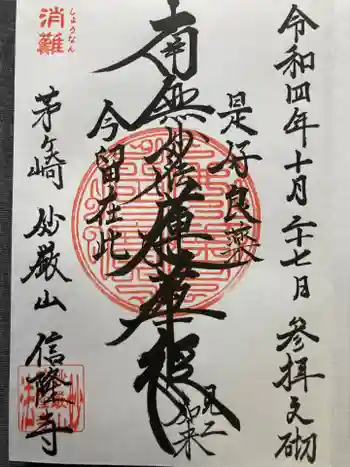 令和四年十月二十七日 参拝之砌
是好良薬
南無妙法蓮華経
今留在此
茅ヶ崎 妙厳山 信隆寺
しょうなん
消難